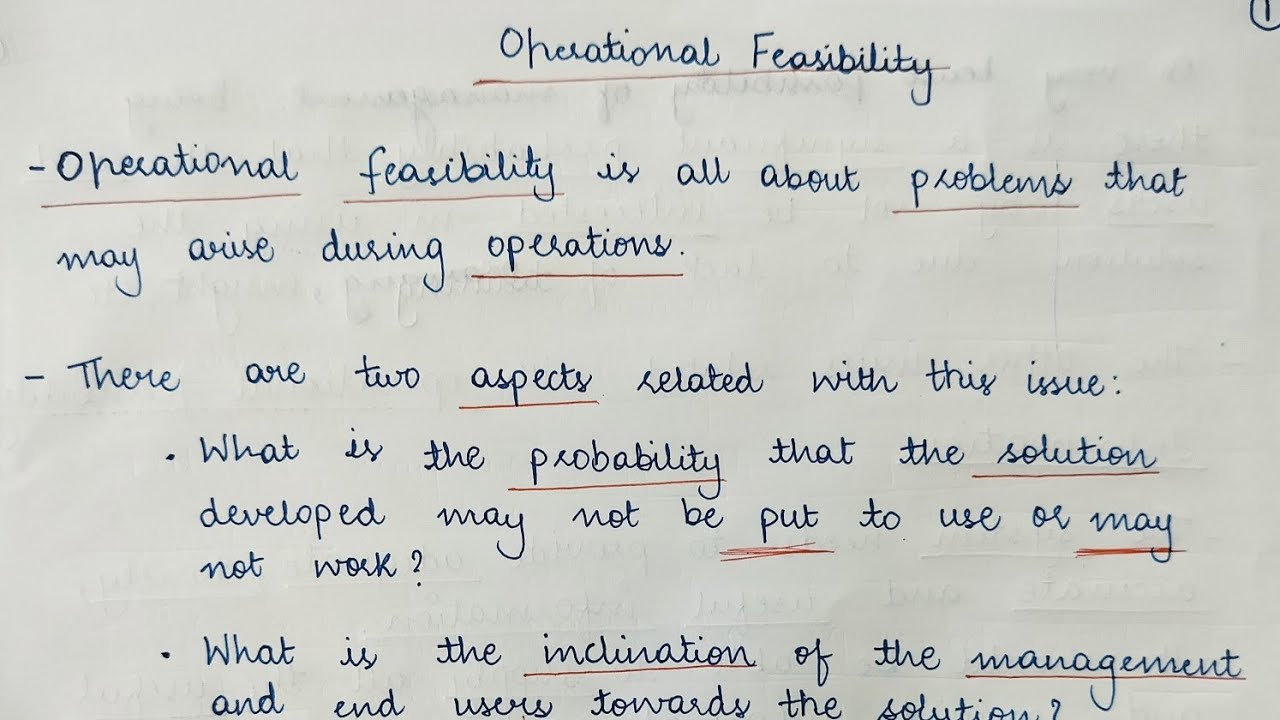 1
Operational Feasibility
- Operational feasibility is all about problems that
may arise during operations.
- There are two aspects related with this issue:
• What is the probability that the solution
developed may not be put to use or may
not work?
• What is the inclination of the management
and end users towards the solution?